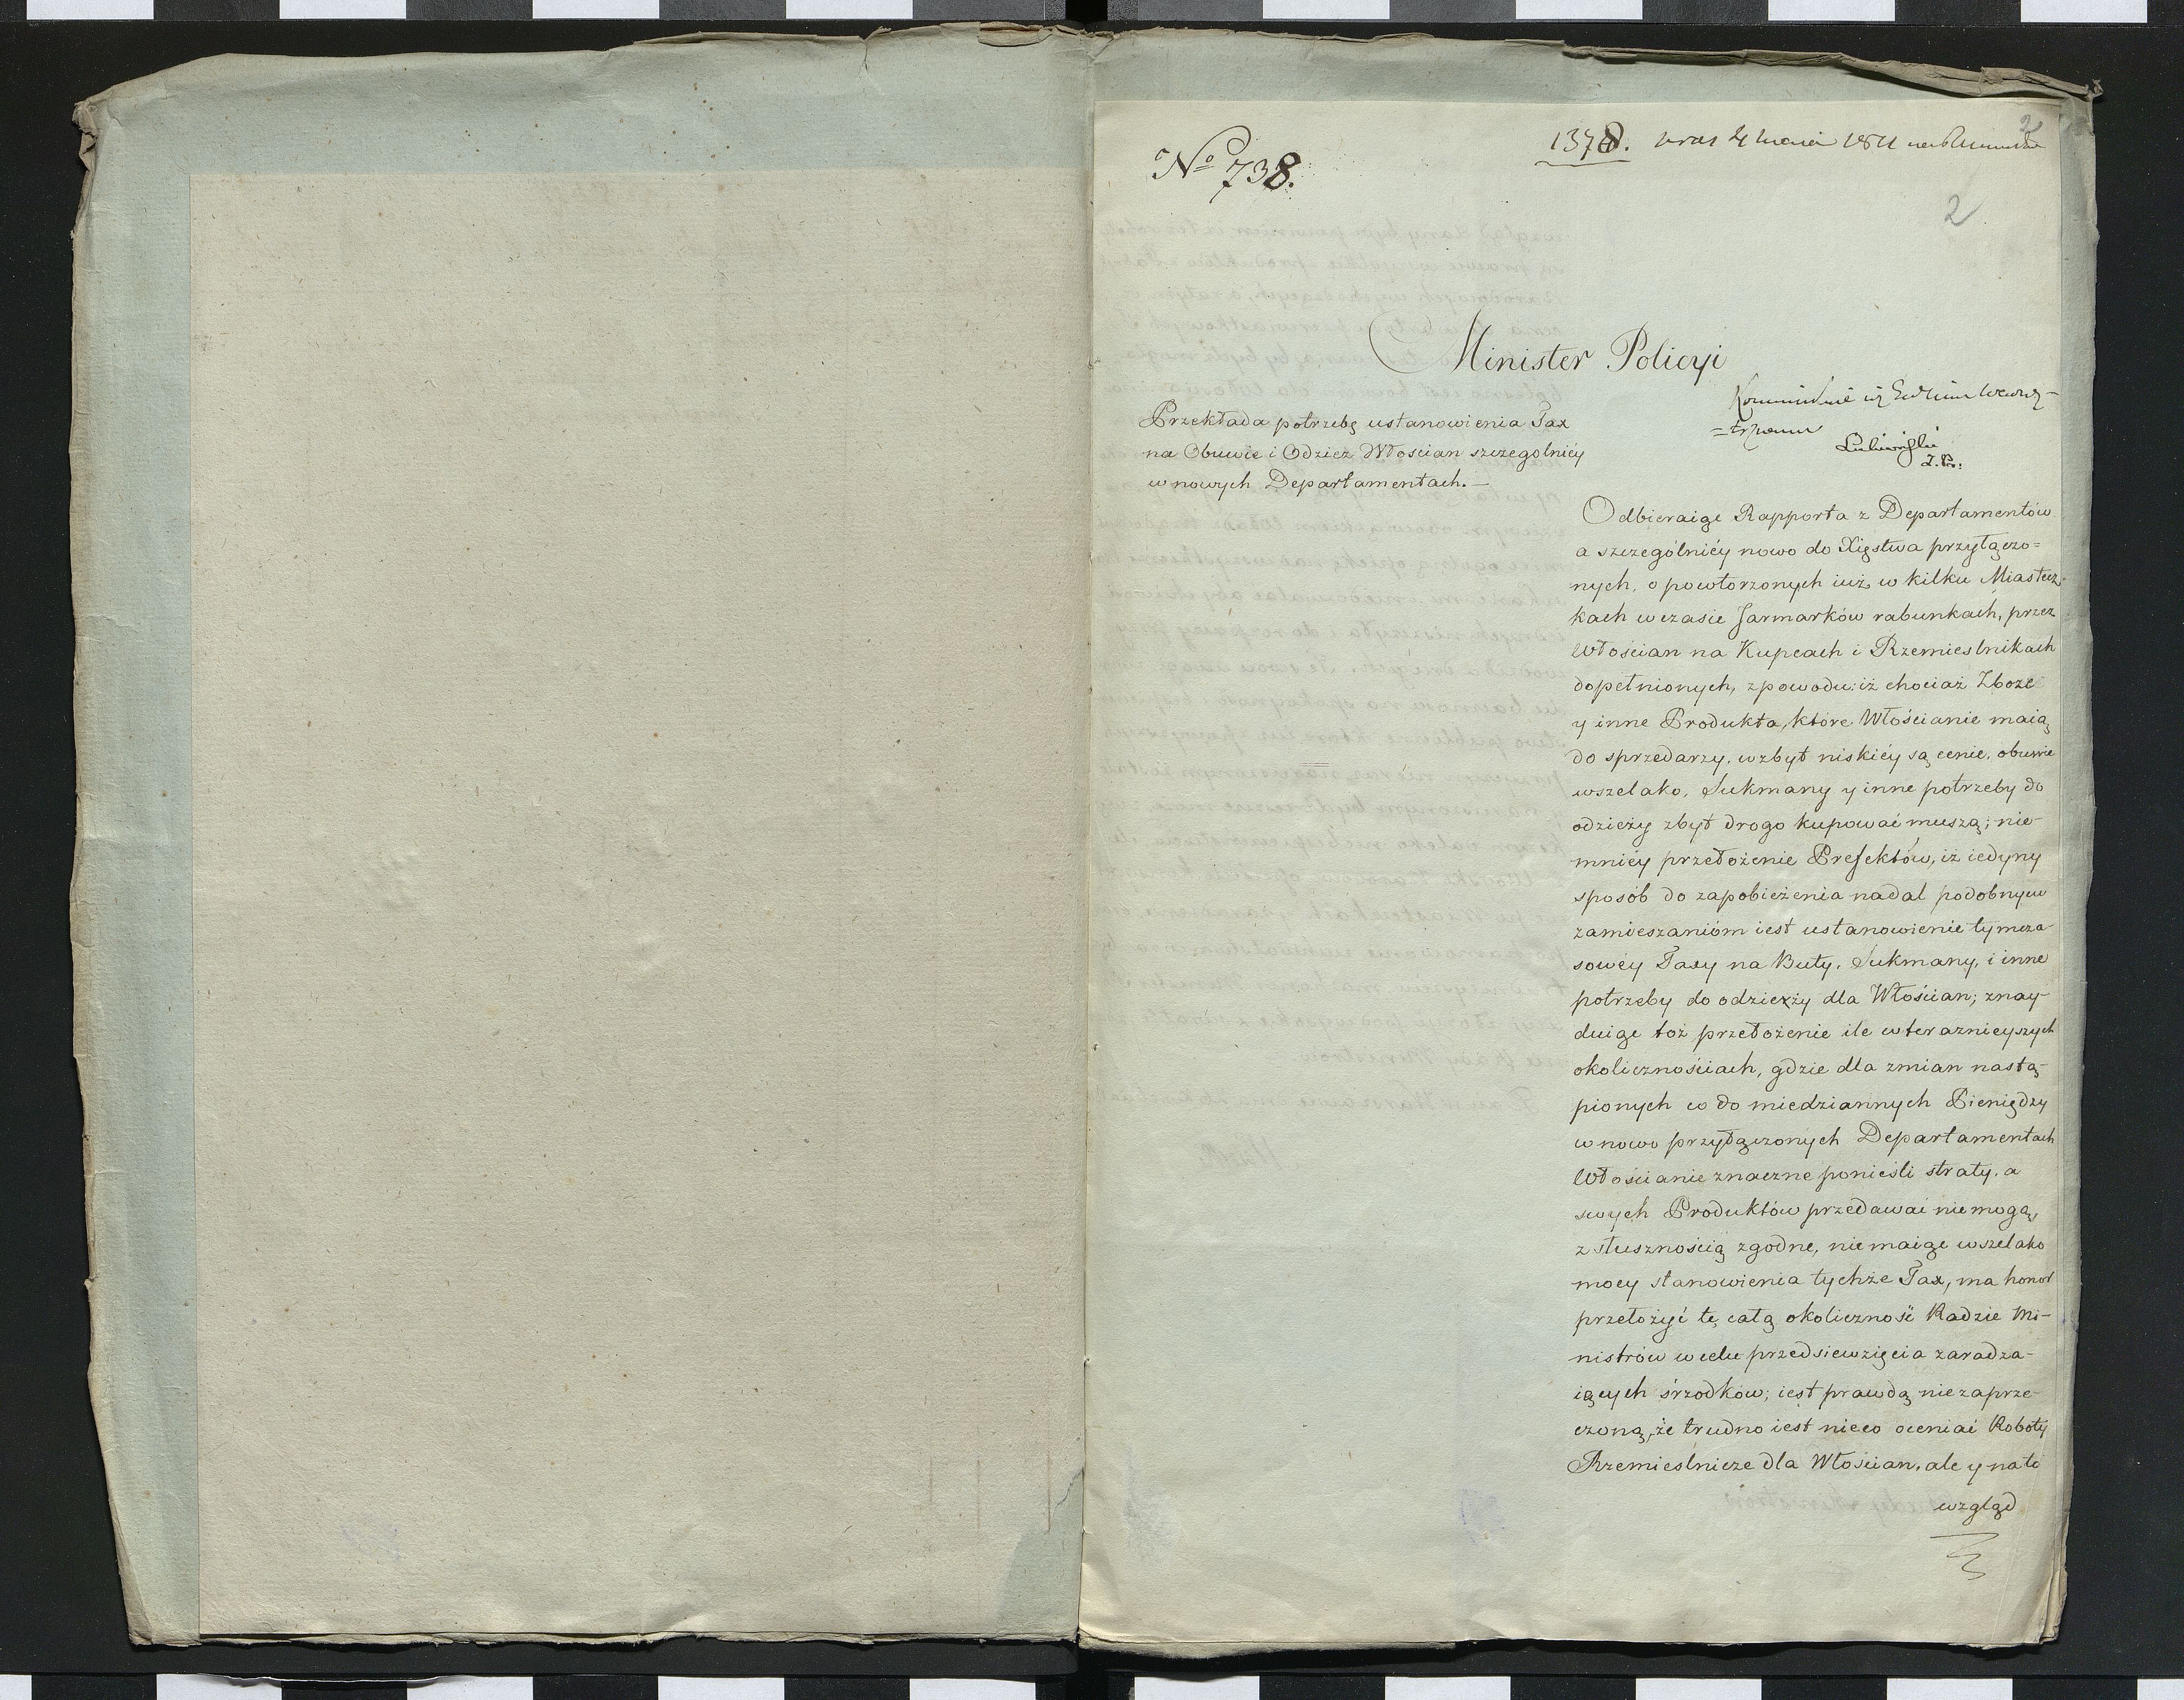 No 738.
1378.
2
2
Minister Policyi
Przekłada potrzebę ustanowienia Tax
na Obuwie i Odzież Włościan szczegolniey
w nowych Departamentach.—
Lubieński
Odbieraiąc Rapporta z Departamentów
a szczególniéy nowo do Xięstwa przyłączo=
nych, o powtorzonych iuż w kilku Miastecz-
kach w czasie Jarmarków rabunkach, przez
Włościan na Kupcach i Rzemieslnikach
dopełnionych, z powodu: iż chociaż Zboże
y inne Produkta, które Włościanie maią
do sprzedarzy, w zbyt niskiéy są cenie, obuwie
wszelako, Sukmany y inne potrzeby do
odzieży zbyt drogo kupować muszą; nie-
mniéy przełożenie Prefektów, iż iedyny
sposób do zapobieżenia nadal podobnym
zamieszanióm iest ustanowienie tymcza-
sowéy Taxy na Buty, Sukmany, i inne
potrzeby do odzieży dla Włościan; znay-
duiąc toż przełożenie ile w teraznieyszych
okolicznościach, gdzie dla zmian nastą-
pionych co do miedziannych Pieniędzy
w nowo przyłączonych Departamentach
Włościanie znaczne ponieśli straty, a
swych Produktów przedawać nie mogą,
z słusznością zgodne, niemaiąc wszelako
mocy stanowienia tychże Tax, ma honor
przełożyć tę całą okoliczność Radzie Mi-
nistrów w celu przedsiewzięcia zaradza-
iących śrzodków; iest prawdą niezaprze-
czoną, że trudno iest nieco oceniać Roboty
Rzemieślnicze dla Włościan, ale y na to
wzgląd